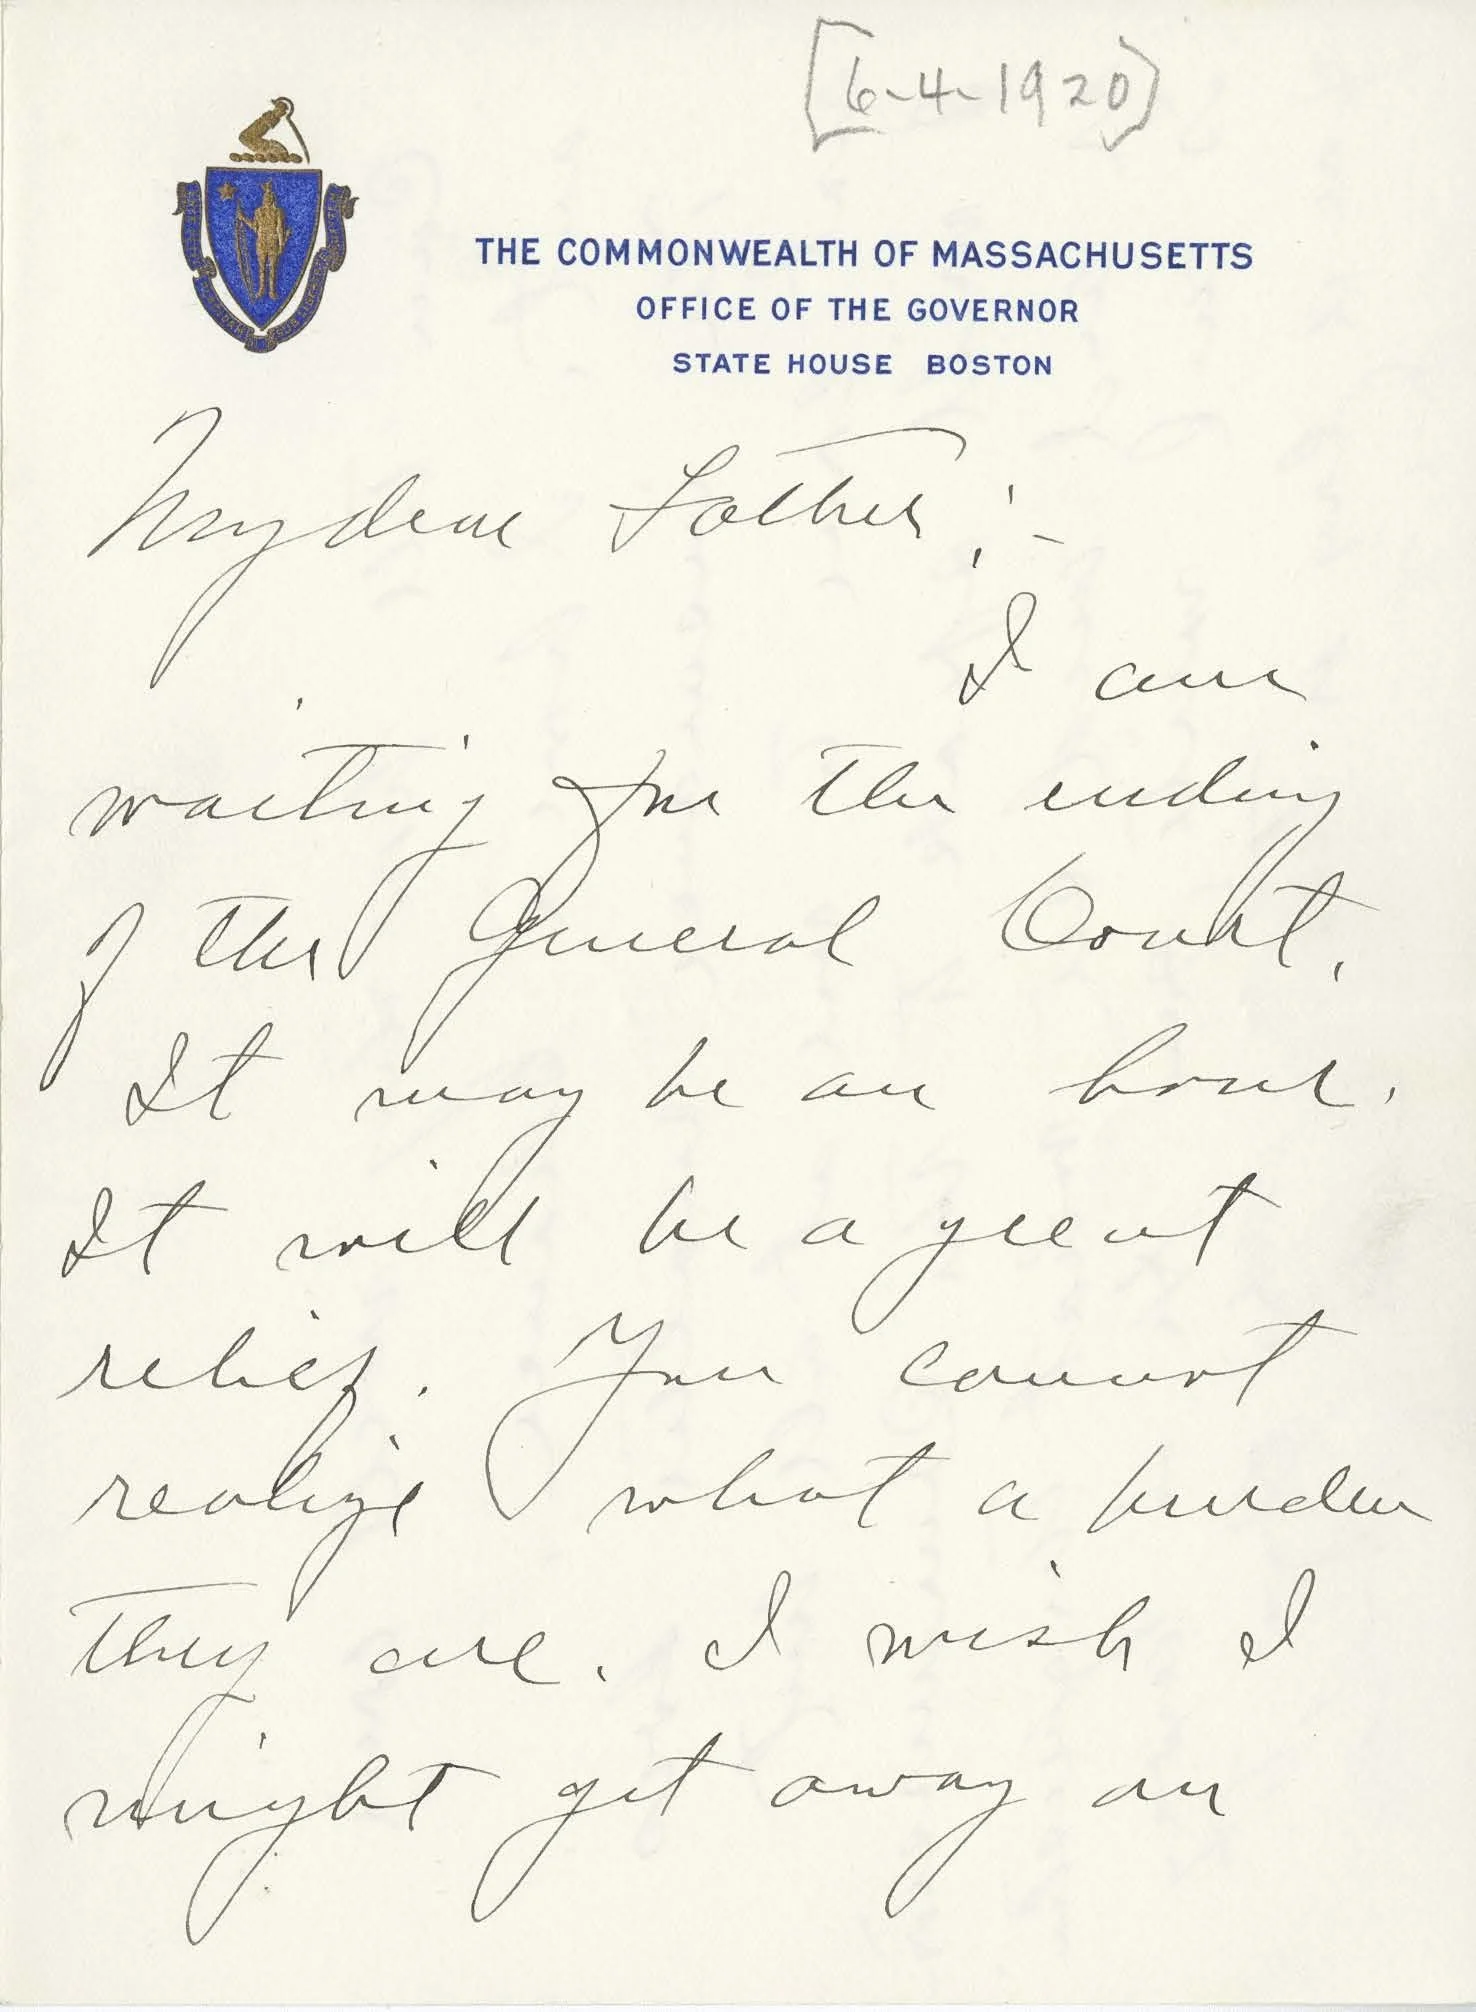 [6-4-1920]
THE COMMONWEALTH OF MASSACHUSETTS
OFFICE OF THE GOVERNOR
STATE HOUSE BOSTON
My dear Father:-
I am
waiting for the ending
of the General Court.
It may be an hour.
It will be a great
relief. You cannot
realize what a burden
they are. I wish I
might get away on